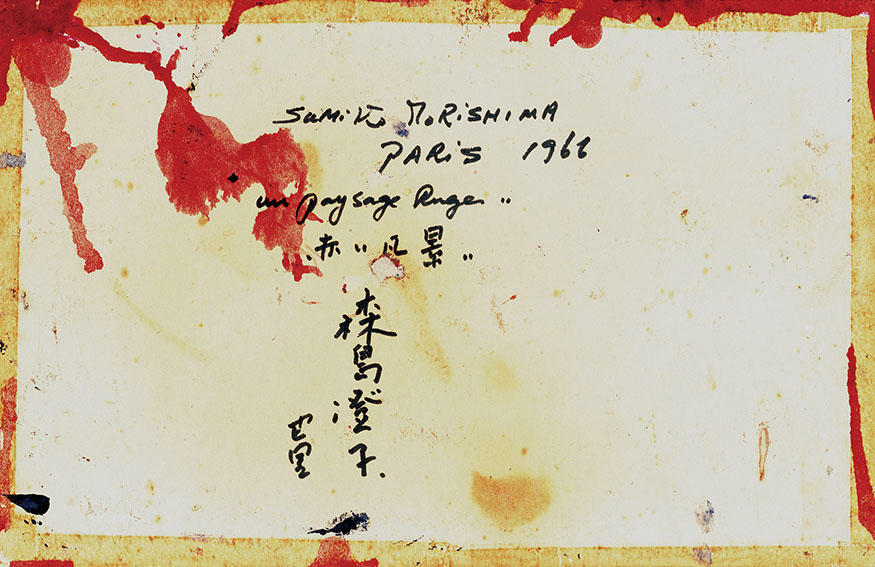 SUMiKo MORiSHiMA
PARiS 1966
un paysage Rouge "
赤い風景 "
森島澄子.
巴里